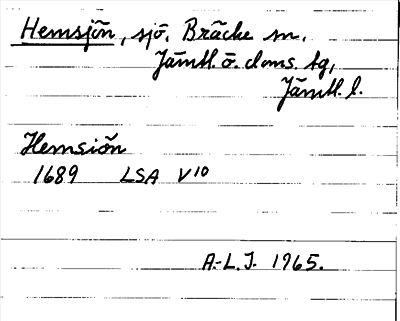 Hemsjön, sjö, Bräcke sn,
Jämtl. ö. doms. tg,
Jämtl. l.
Hemsiön
1689 LSA V10
A.-L.J. 1965.